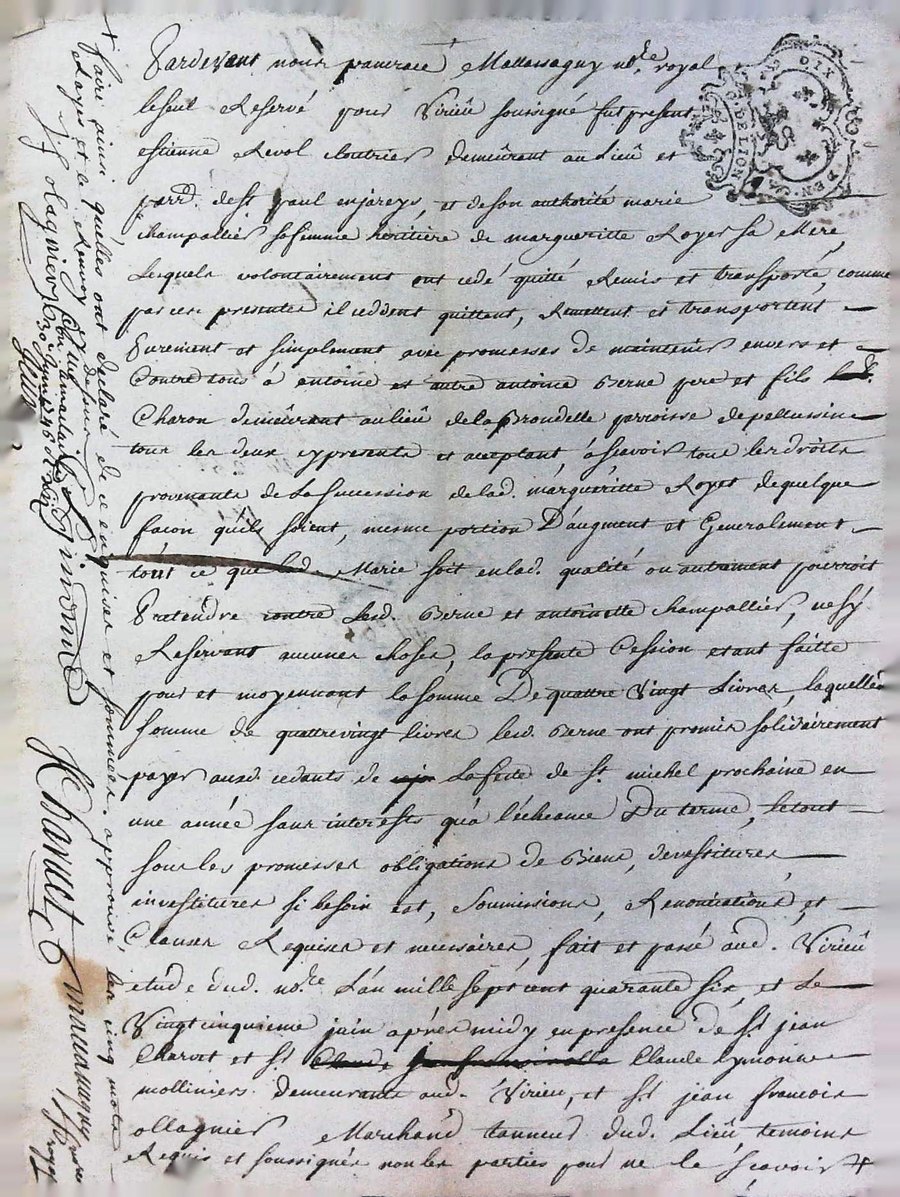 Pardevant nous pancrace Mallassagny no.re royal
le seul Reservé pour Virieü soussigné fut present
estienne Revol cloutrier demeürant au Lieü et
parr.d de st paul enjareys, et de son authorité marie
champallier sa femme héritière de margueritte Royer sa Mere,
Lesquels volontairement ont cedé quitté Remis et transporté, comme
par ces presentes il ceddent quittent, Remettent et transportent
Purement et simplement avec promesses de maintenir envers et
Contre tous à antoine et autre antoine Berne pere et fils
Charon demeürant au lieü de la Brondelle parroisse de pellussin
tous les deux cy presents et aceptant, à scavoir tous les droits
provenants de La succession de lad. margueritte Royet de quelque
façon quils soient, mesme portion D'augment et Generalement
tout ce que lad Marie soit en lad. qualité ou autrement pourroit
Pretendre contre lesd. Berne et antoinette champallier, ne sÿ
Reservant aucunes choses, la presente Cession etant faitte
pour et moyennant la somme De quattre Vingt Livres, laquelles
somme de quattrevingt livres lesd. Berne ont promis solidairement
payer ausd. cedants de La feste de st. michel prochaine en
une année sans interests qu'à l'écheance Du terme, le tout
sous les promesses obligations de Biens, devestitures,
investitures si besoin est, Soumissions, Renontiations, et
Clauses Requises et necessaires, fait et passé aud. Virieü
etude dud. no.re L'an mille sept cent quarante six, et Le
Vingtcinquieme juin aprés midy en presence de st. jean
Charvet et st. Claude Claude Symonne
molliniers demeurants aud. Virieu, et st jean francois
ollagnier Marchand tanneur dud. Lieü, temoins
Requis et soussignés non les parties pour ne le scavoir
faire ainsi quélles ont declaré de ce enquises et sommées. approuvé les cinq mots
Rayes et le Renvoy
jf olagnier
Charvet
OIX
DEN.
G. DE LION